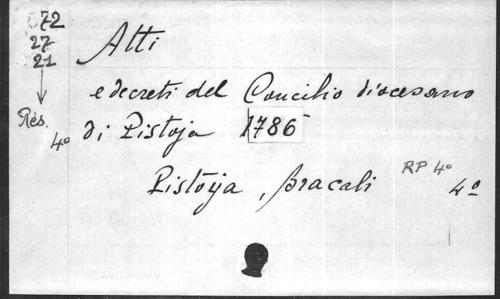 072
27
21
Rés.
4º
Atti
e decreti del Concilio diocesano
di Pistoja 1786
Pistoija, Bracali
RP 4º
4º